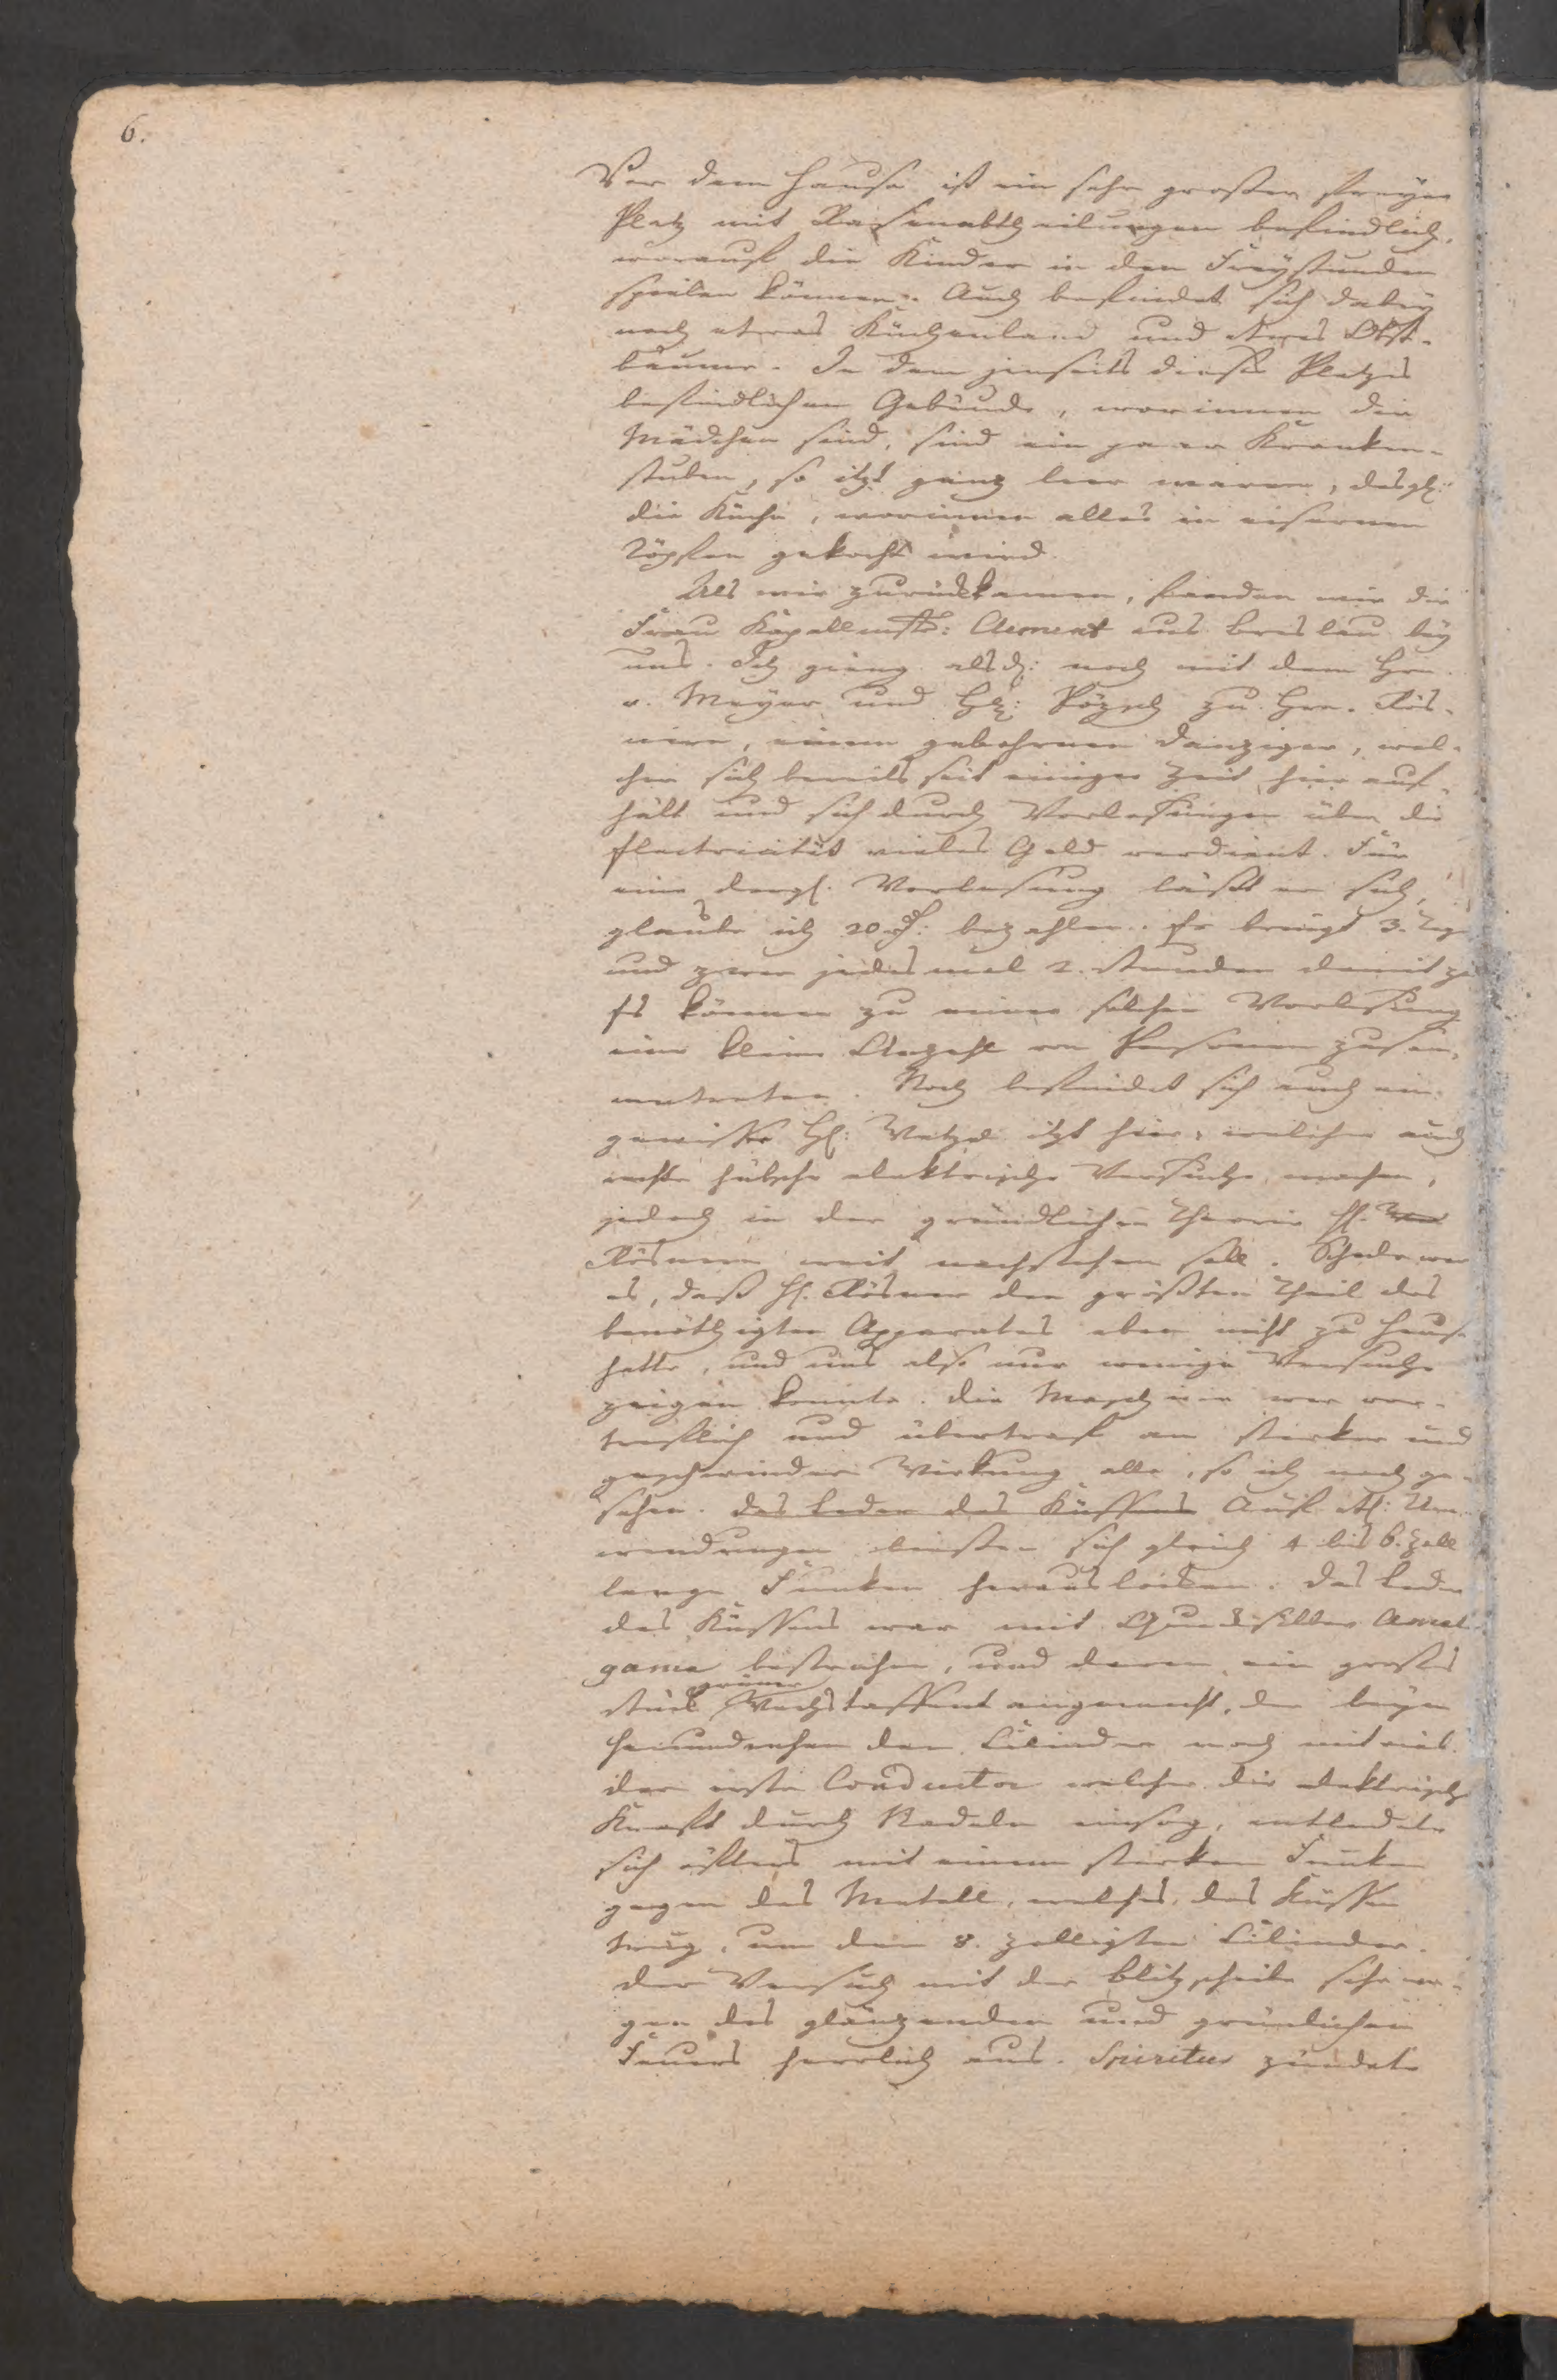 6.
Vor dem Hause ist ein sehr großer freyer
Platz mit Rasenabtheilungen befindlich,
worauf die Kinder in den Freystunden
spielen können. Auch befindet sich dabey
noch etwas Küchenland und etwas Obst-
bäume. In dem jenseits dieses Platzes
befindlichen Gebäude, worinnen die
Mädchen sind, sind ein paar Kranken-
stuben, so itzt ganz leer waren, desgl:
die Küche, worinnen alles in eisernen
Töpfen gekocht wird.
Als wir zurückkamen, fanden wir die
Frau Kapellmstr: Clement aus Breslau bey
uns. Ich gieng alsd: noch mit dem Hrn
v. Meyer und H: Pözsch zu Hrn. Rös-
nern, einem gebohrnen Danziger, wel-
cher sich bereits seit einiger Zeit hier auf-
hält und sich durch Vorlesungen über die
Electricität vieles Geld verdient. Für
eine dergl. Vorlesung läßt er sich,
glaube ich 20 bezahlen. Er bringt 3. Tage
und zwar jedesmal 2. Stunden damit zu
Es können zu einer solchen Vorlesung
eine kleine Anzahl von Personen zusam-
mentreten. Noch befindet sich auch ein
gewisser H: Wetzel itzt hier, welcher auch
recht hübsche elektrische Versuche machen,
jedoch in der gründlichen Theorie H.
Rösnern weit nachstehen soll. Schade war
es, daß H. Rösner den größten Theil des
benöthigten Apparates eben nicht zu Hause
hatte, und uns also nur wenige Versuche
zeigen konnte. Die Maschine war vor-
treflich und übertraf an starker und
geschwinder Wirkung alle, so ich noch ge-
sehen. Das Leder des Küssens Auf etl: Um-
wendungen ließen sich gleich 4 bis 6. Zoll
lange Funken herauslocken. Das Leder
des Küssens war mit Quecksilber Amal-
gama bestrichen, und daran ein großes
Stück grüner Wachstaffent angemacht, der beym
Herumdrehen den Cilinder noch mit rieb.
Der erste Conductor welcher die elektrische
Kraft durch Nadeln einsog, entladete
sich öfters mit einem starken Funken
gegen das Metall, welches das Küssen
trug, um den 8. zolligten Cilinder.
Der Versuch mit der Blitzscheibe sehr we-
gen des glänzenden und grünlichen
Feuers herrlich aus. Spiritus zündete